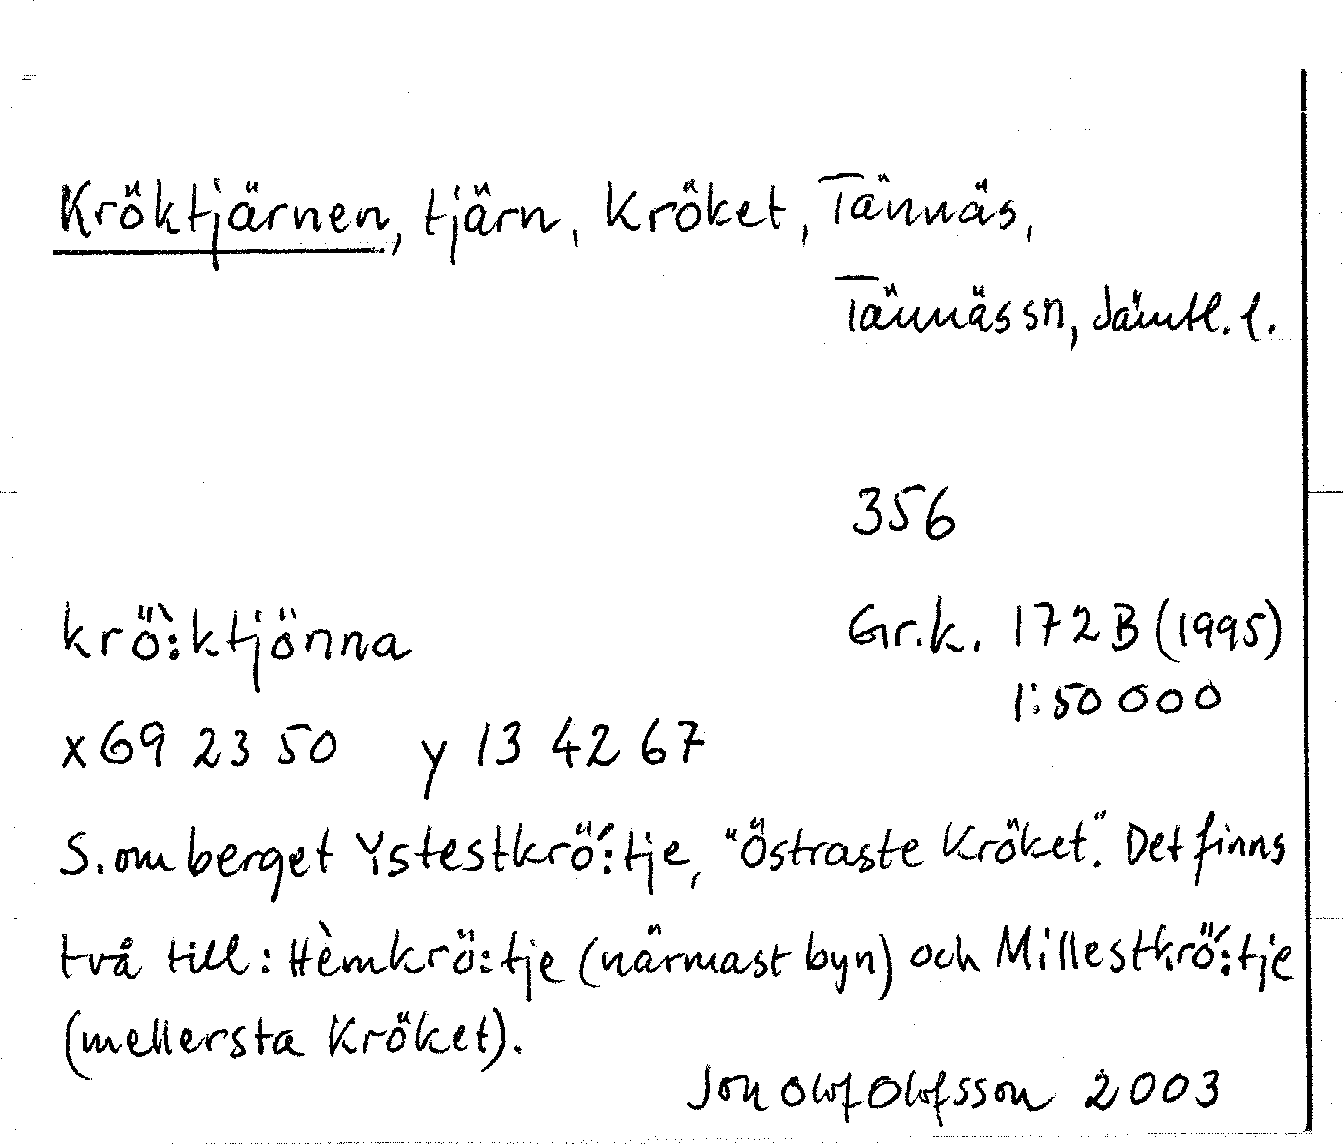 Kröktjärnen, tjärn, Kröket, Tännäs,
Tännäs sn, Jämtl. l.
356
krö̀:ktjönna
Gr.k. 172B (1995)
1:50 000
x 69 23 50 y 13 42 67
S. om berget Ystestkrö́:tje, "Östraste Kröket". Det finns
två till: Hèmkrö:tje (närmast byn) och Millestkrö́:tje
(mellersta Kröket).
Jon Olof Olofsson 2003